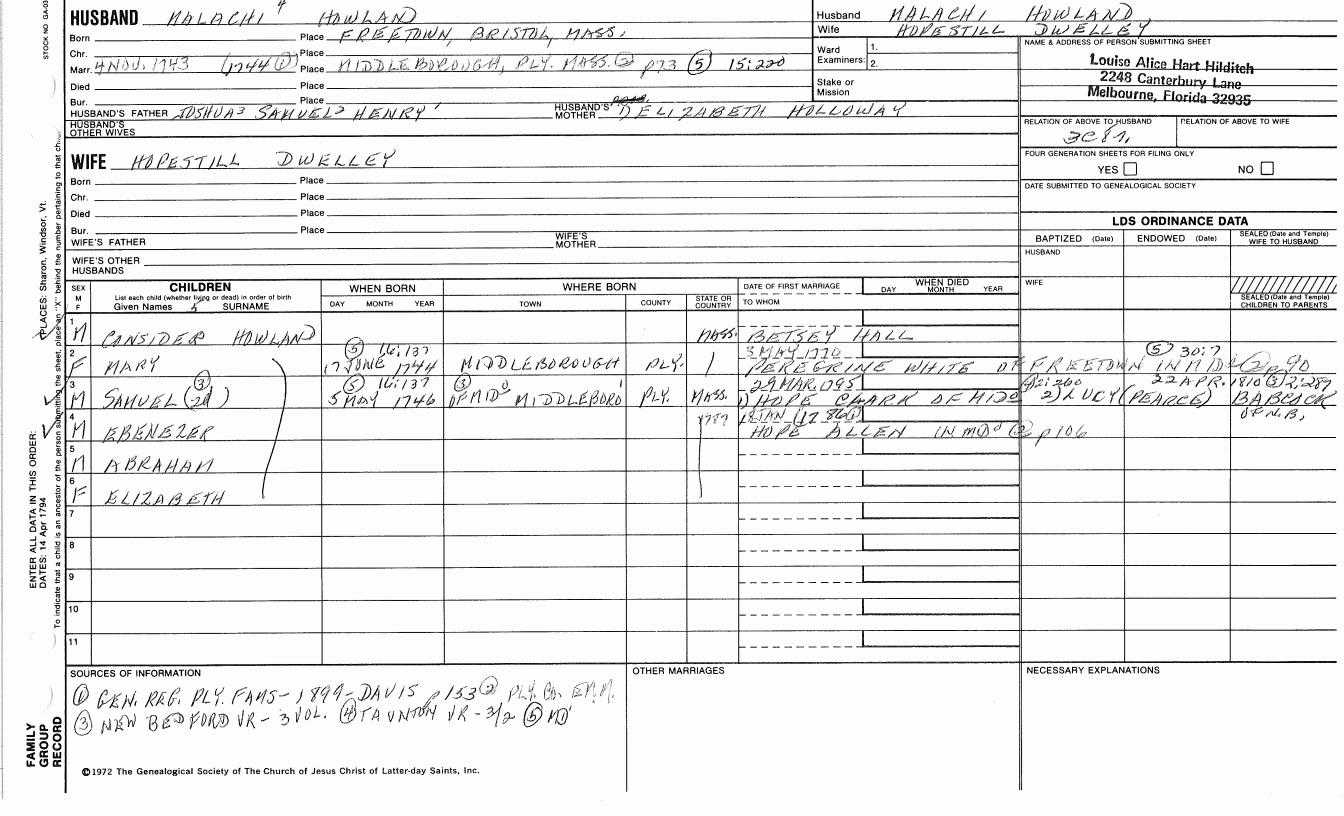 STOCK NO GA-03
HUSBAND MALACHI 4 HOWLAND
Born Place FREETOWN, BRISTOL, MASS.
Chr. Place
Marr. 4 NOV. 1743 (1744 ①) Place MIDDLEBOROUGH, PLY. MASS. ② p73 ⑤ 15:220
Died Place
Bur. Place
HUSBAND'S FATHER JOSHUA3 SAMUEL2 HENRY1 HUSBAND'S MOTHER ELIZABETH HOLLOWAY
HUSBAND'S OTHER WIVES
Husband MALACHI HOWLAND
Wife HOPESTILL DWELLEY
Ward Examiners: 1. 2.
Stake or Mission
NAME & ADDRESS OF PERSON SUBMITTING SHEET
Louise Alice Hart Hilditch
2248 Canterbury Lane
Melbourne, Florida 32935
RELATION OF ABOVE TO HUSBAND RELATION OF ABOVE TO WIFE
FOUR GENERATION SHEETS FOR FILING ONLY
YES NO
DATE SUBMITTED TO GENEALOGICAL SOCIETY
WIFE HOPESTILL DWELLEY
Born Place
Chr. Place
Died Place
Bur. Place
WIFE'S FATHER WIFE'S MOTHER
WIFE'S OTHER HUSBANDS
LDS ORDINANCE DATA
BAPTIZED (Date) ENDOWED (Date) SEALED (Date and Temple) WIFE TO HUSBAND
HUSBAND
WIFE
SEALED (Date and Temple) CHILDREN TO PARENTS
SEX M F CHILDREN WHEN BORN WHERE BORN DATE OF FIRST MARRIAGE WHEN DIED
List each child (whether living or dead) in order of birth
Given Names 5 SURNAME DAY MONTH YEAR TOWN COUNTY STATE OR COUNTRY TO WHOM DAY MONTH YEAR
1 M CONSIDER HOWLAND MASS. BETSEY HALL
2 ⑤ 16:137 3 MAY 1770 ⑤ 30:7
F MARY 17 JUNE 1744 MIDDLEBOROUGH PLY. PEREGRINE WHITE OF FREETOWN IN MID ② p. 90
3 ③ ⑤ 16:137 ③ 29 MAR. 1795 2:260 22 APR. 1810 ③ 2:287
M SAMUEL (2d) 5 MAY 1746 OF MIDo MIDDLEBORO PLY. MASS. 1) HOPE CLARK OF MIDo 2) LUCY (PEARCE) BABCOCK
OF N.B.
4 1787 18 JAN (1786 ①)
M EBENEZER HOPE ALLEN IN MDo ② p106
5 M ABRAHAM
6 F ELIZABETH
7
8
9
10
11
SOURCES OF INFORMATION
① GEN. REG. PLY. FAMS - 1899 - DAVIS p153 ② PLY. CO. E.M.
③ NEW BEDFORD VR - 3 VOL. ④ TAUNTON VR - 3/2 ⑤ MD
OTHER MARRIAGES
NECESSARY EXPLANATIONS
©1972 The Genealogical Society of The Church of Jesus Christ of Latter-day Saints, Inc.
FAMILY GROUP RECORD
ENTER ALL DATA IN THIS ORDER:
DATES: 14 Apr 1794
PLACES: Sharon, Windsor, Vt.
To indicate that a child is an ancestor of the person submitting the sheet, place an "X" behind the number pertaining to that